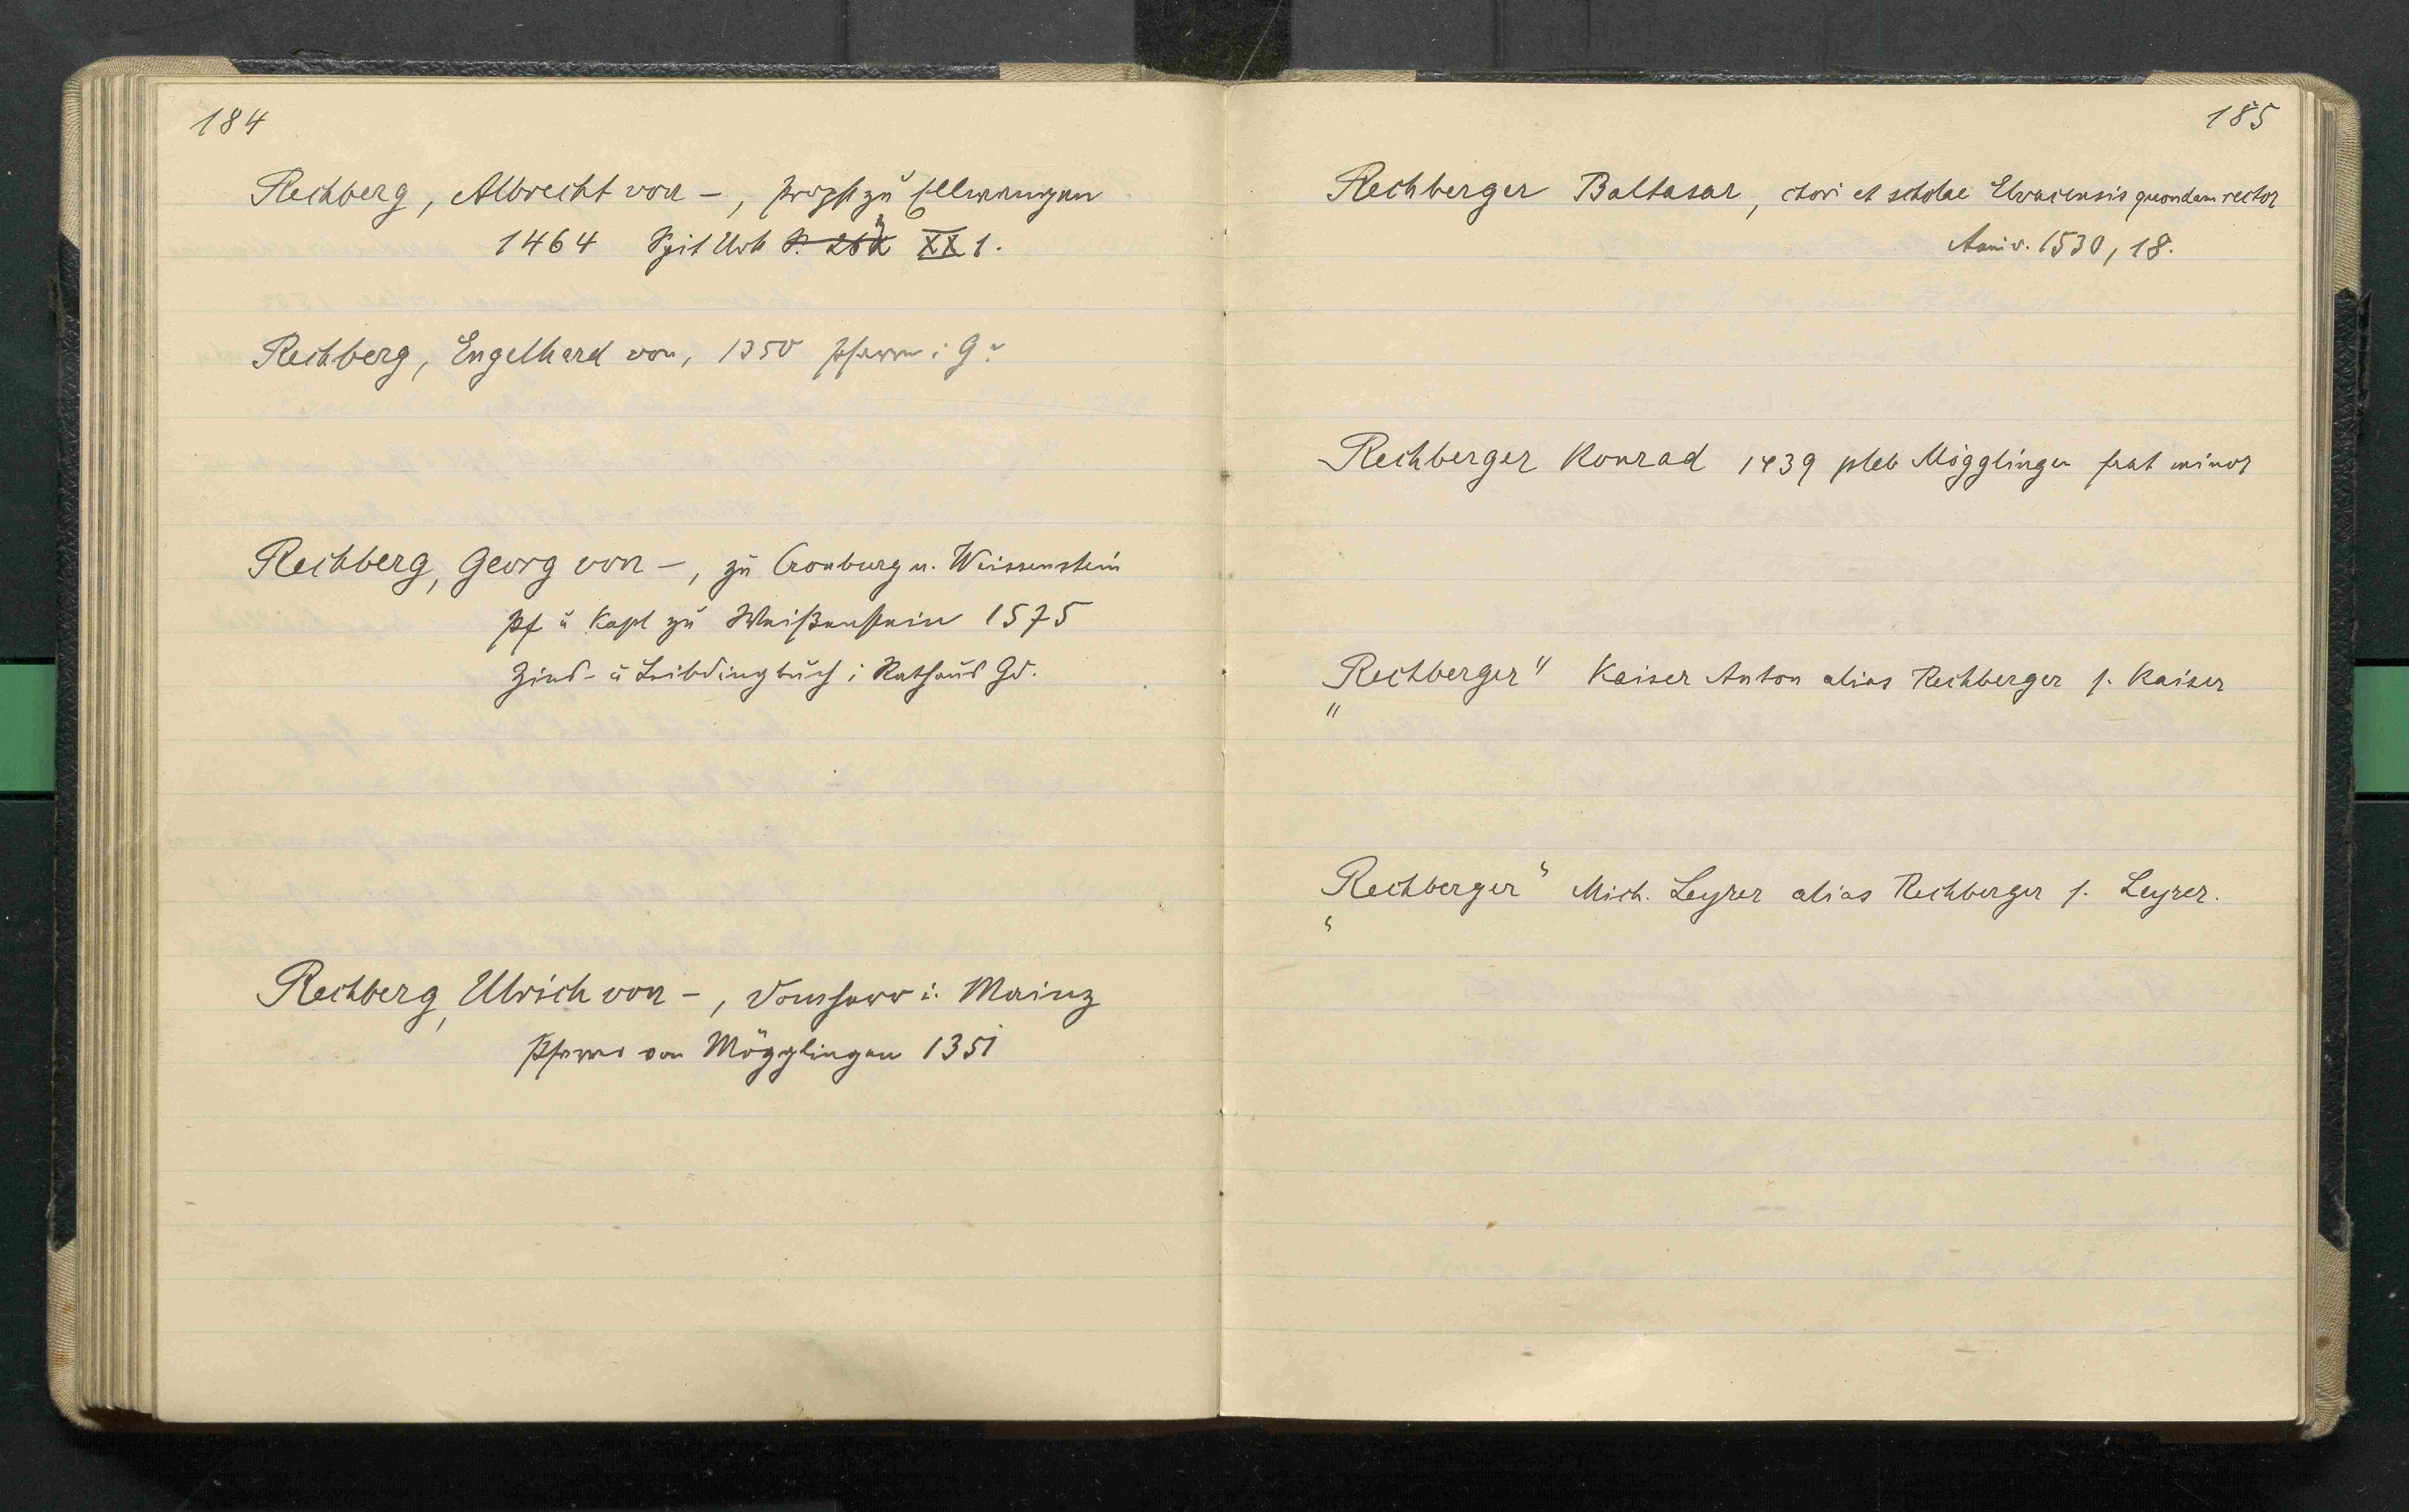 184
Rechberg, Albrecht von –, Propst zu Ellwangen
1464 Spit Urk XX 1.
Rechberg, Engelhard von, 1350 Pfarrer i G
Rechberg, Georg von –, zu Cronburg u. Weissenstein
Pf u Kapl zu Weißenstein 1575
Zins- u Leibdingbuch i Rathaus Gd.
Rechberg, Ulrich von –, Domherr i. Mainz
Pfarrer von Mögglingen 1351
185
Rechberger Baltasar, chori et scholae Elvacensis quondam rector
Anniv. 1530, 18.
Rechberger Konrad 1439 pleb Mögglingen frat minor
„Rechberger" Kaiser Anton alias Rechberger s. Kaiser
„Rechberger" Mich. Leyrer alias Rechberger s. Leyrer.